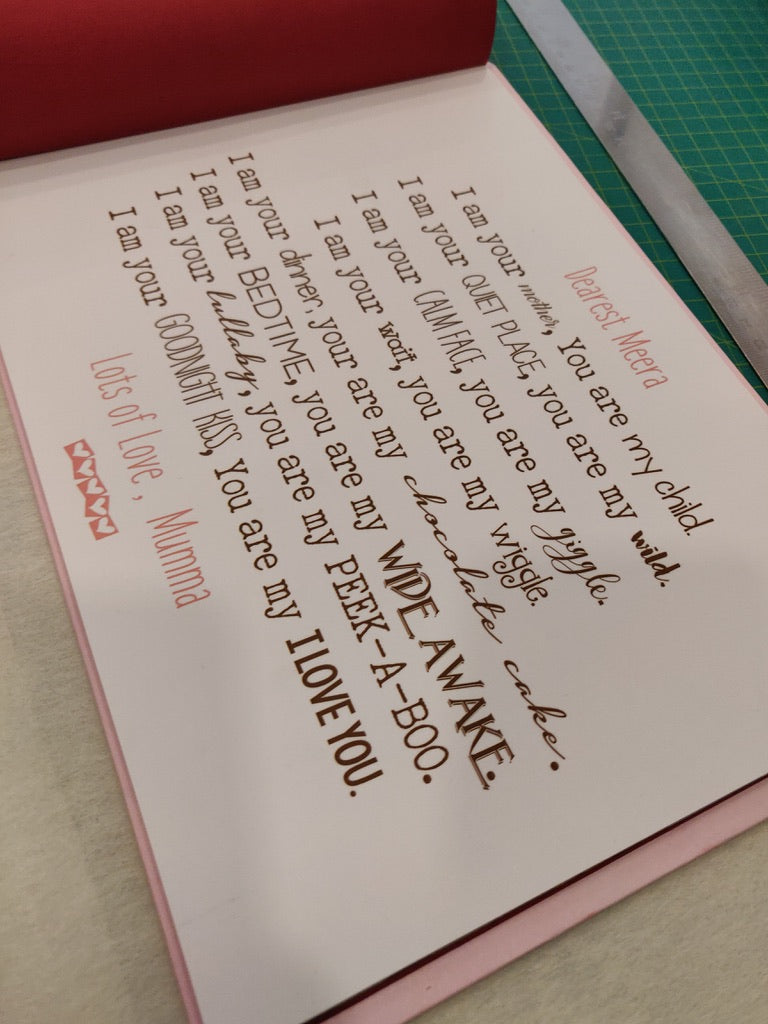 Dearest Meera
I am your mother, You are my child.
I am your QUIET PLACE, you are my wild.
I am your CALM FACE, you are my giggle.
I am your wait, you are my wiggle.
I am your dinner, your are my chocolate cake.
I am your BEDTIME, you are my WIDE AWAKE.
I am your lullaby, you are my PEEK-A-BOO.
I am your GOODNIGHT KISS, You are my I LOVE YOU.
Lots of Love, Mumma